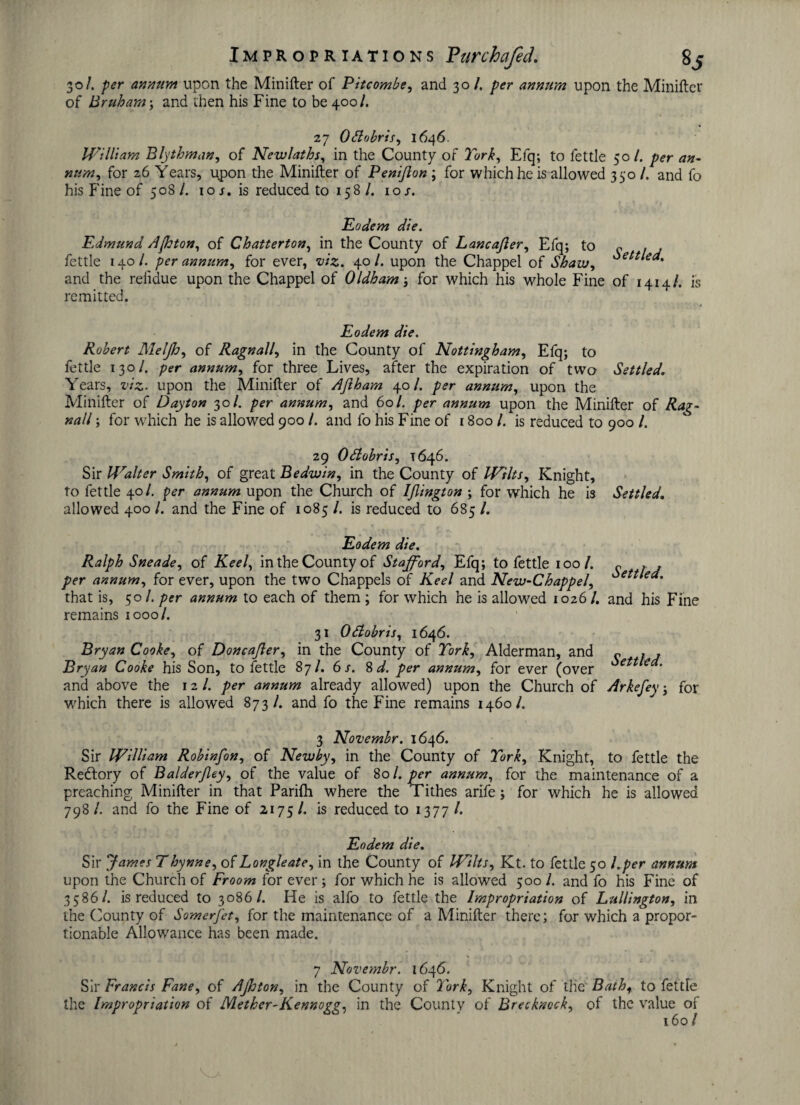 Impropriations Purchaſed. 85
30 l. per annum upon the Miniſter of Pitcombe, and 30 l. per annum upon the Miniſter
of Bruham; and then his Fine to be 400 l.
27 Octobris, 1646.
William Blythman, of Newlaths, in the County of York, Eſq; to ſettle 50 l. per an-
num, for 26 Years, upon the Miniſter of Peniſton; for which he is allowed 350 l. and ſo
his Fine of 508 l. 10 s. is reduced to 158 l. 10 s.
Eodem die.
Edmund Aſhton, of Chatterton, in the County of Lancaſter, Eſq; to
ſettle 140 l. per annum, for ever, viz. 40 l. upon the Chappel of Shaw, Settled.
and the reſidue upon the Chappel of Oldham; for which his whole Fine of 1414 l. is
remitted.
Eodem die.
Robert Melſh, of Ragnall, in the County of Nottingham, Eſq; to
ſettle 130 l. per annum, for three Lives, after the expiration of two Settled.
Years, viz. upon the Miniſter of Aſtham 40 l. per annum, upon the
Miniſter of Dayton 30 l. per annum, and 60 l. per annum upon the Miniſter of Rag-
nall; for which he is allowed 900 l. and ſo his Fine of 1800 l. is reduced to 900 l.
29 Octobris, 1646.
Sir Walter Smith, of great Bedwin, in the County of Wilts, Knight,
to ſettle 40 l. per annum upon the Church of Iſlington; for which he is Settled.
allowed 400 l. and the Fine of 1085 l. is reduced to 685 l.
Eodem die.
Ralph Sneade, of Keel, in the County of Stafford, Eſq; to ſettle 100 l.
per annum, for ever, upon the two Chappels of Keel and New-Chappel, Settled.
that is, 50 l. per annum to each of them; for which he is allowed 1026 l. and his Fine
remains 1000 l.
31 Octobris, 1646.
Bryan Cooke, of Doncaſter, in the County of York, Alderman, and
Bryan Cooke his Son, to ſettle 87 l. 6 s. 8 d. per annum, for ever (over Settled.
and above the 12 l. per annum already allowed) upon the Church of Arkeſey; for
which there is allowed 873 l. and ſo the Fine remains 1460 l.
3 Novembr. 1646.
Sir William Robinſon, of Newby, in the County of York, Knight, to ſettle the
Rectory of Balderſley, of the value of 80 l. per annum, for the maintenance of a
preaching Miniſter in that Pariſh where the Tithes ariſe; for which he is allowed
798 l. and ſo the Fine of 2175 l. is reduced to 1377 l.
Eodem die.
Sir James Thynne, of Longleate, in the County of Wilts, Kt. to ſettle 50 l. per annum
upon the Church of Froom for ever; for which he is allowed 500 l. and ſo his Fine of
3586 l. is reduced to 3086 l. He is alſo to ſettle the Impropriation of Lullington, in
the County of Somerſet, for the maintenance of a Miniſter there; for which a propor-
tionable Allowance has been made.
7 Novembr. 1646.
Sir Francis Fane, of Aſhton, in the County of York, Knight of the Bath, to ſettle
the Impropriation of Mether-Kennogg, in the County of Brecknock, of the value of
160 l